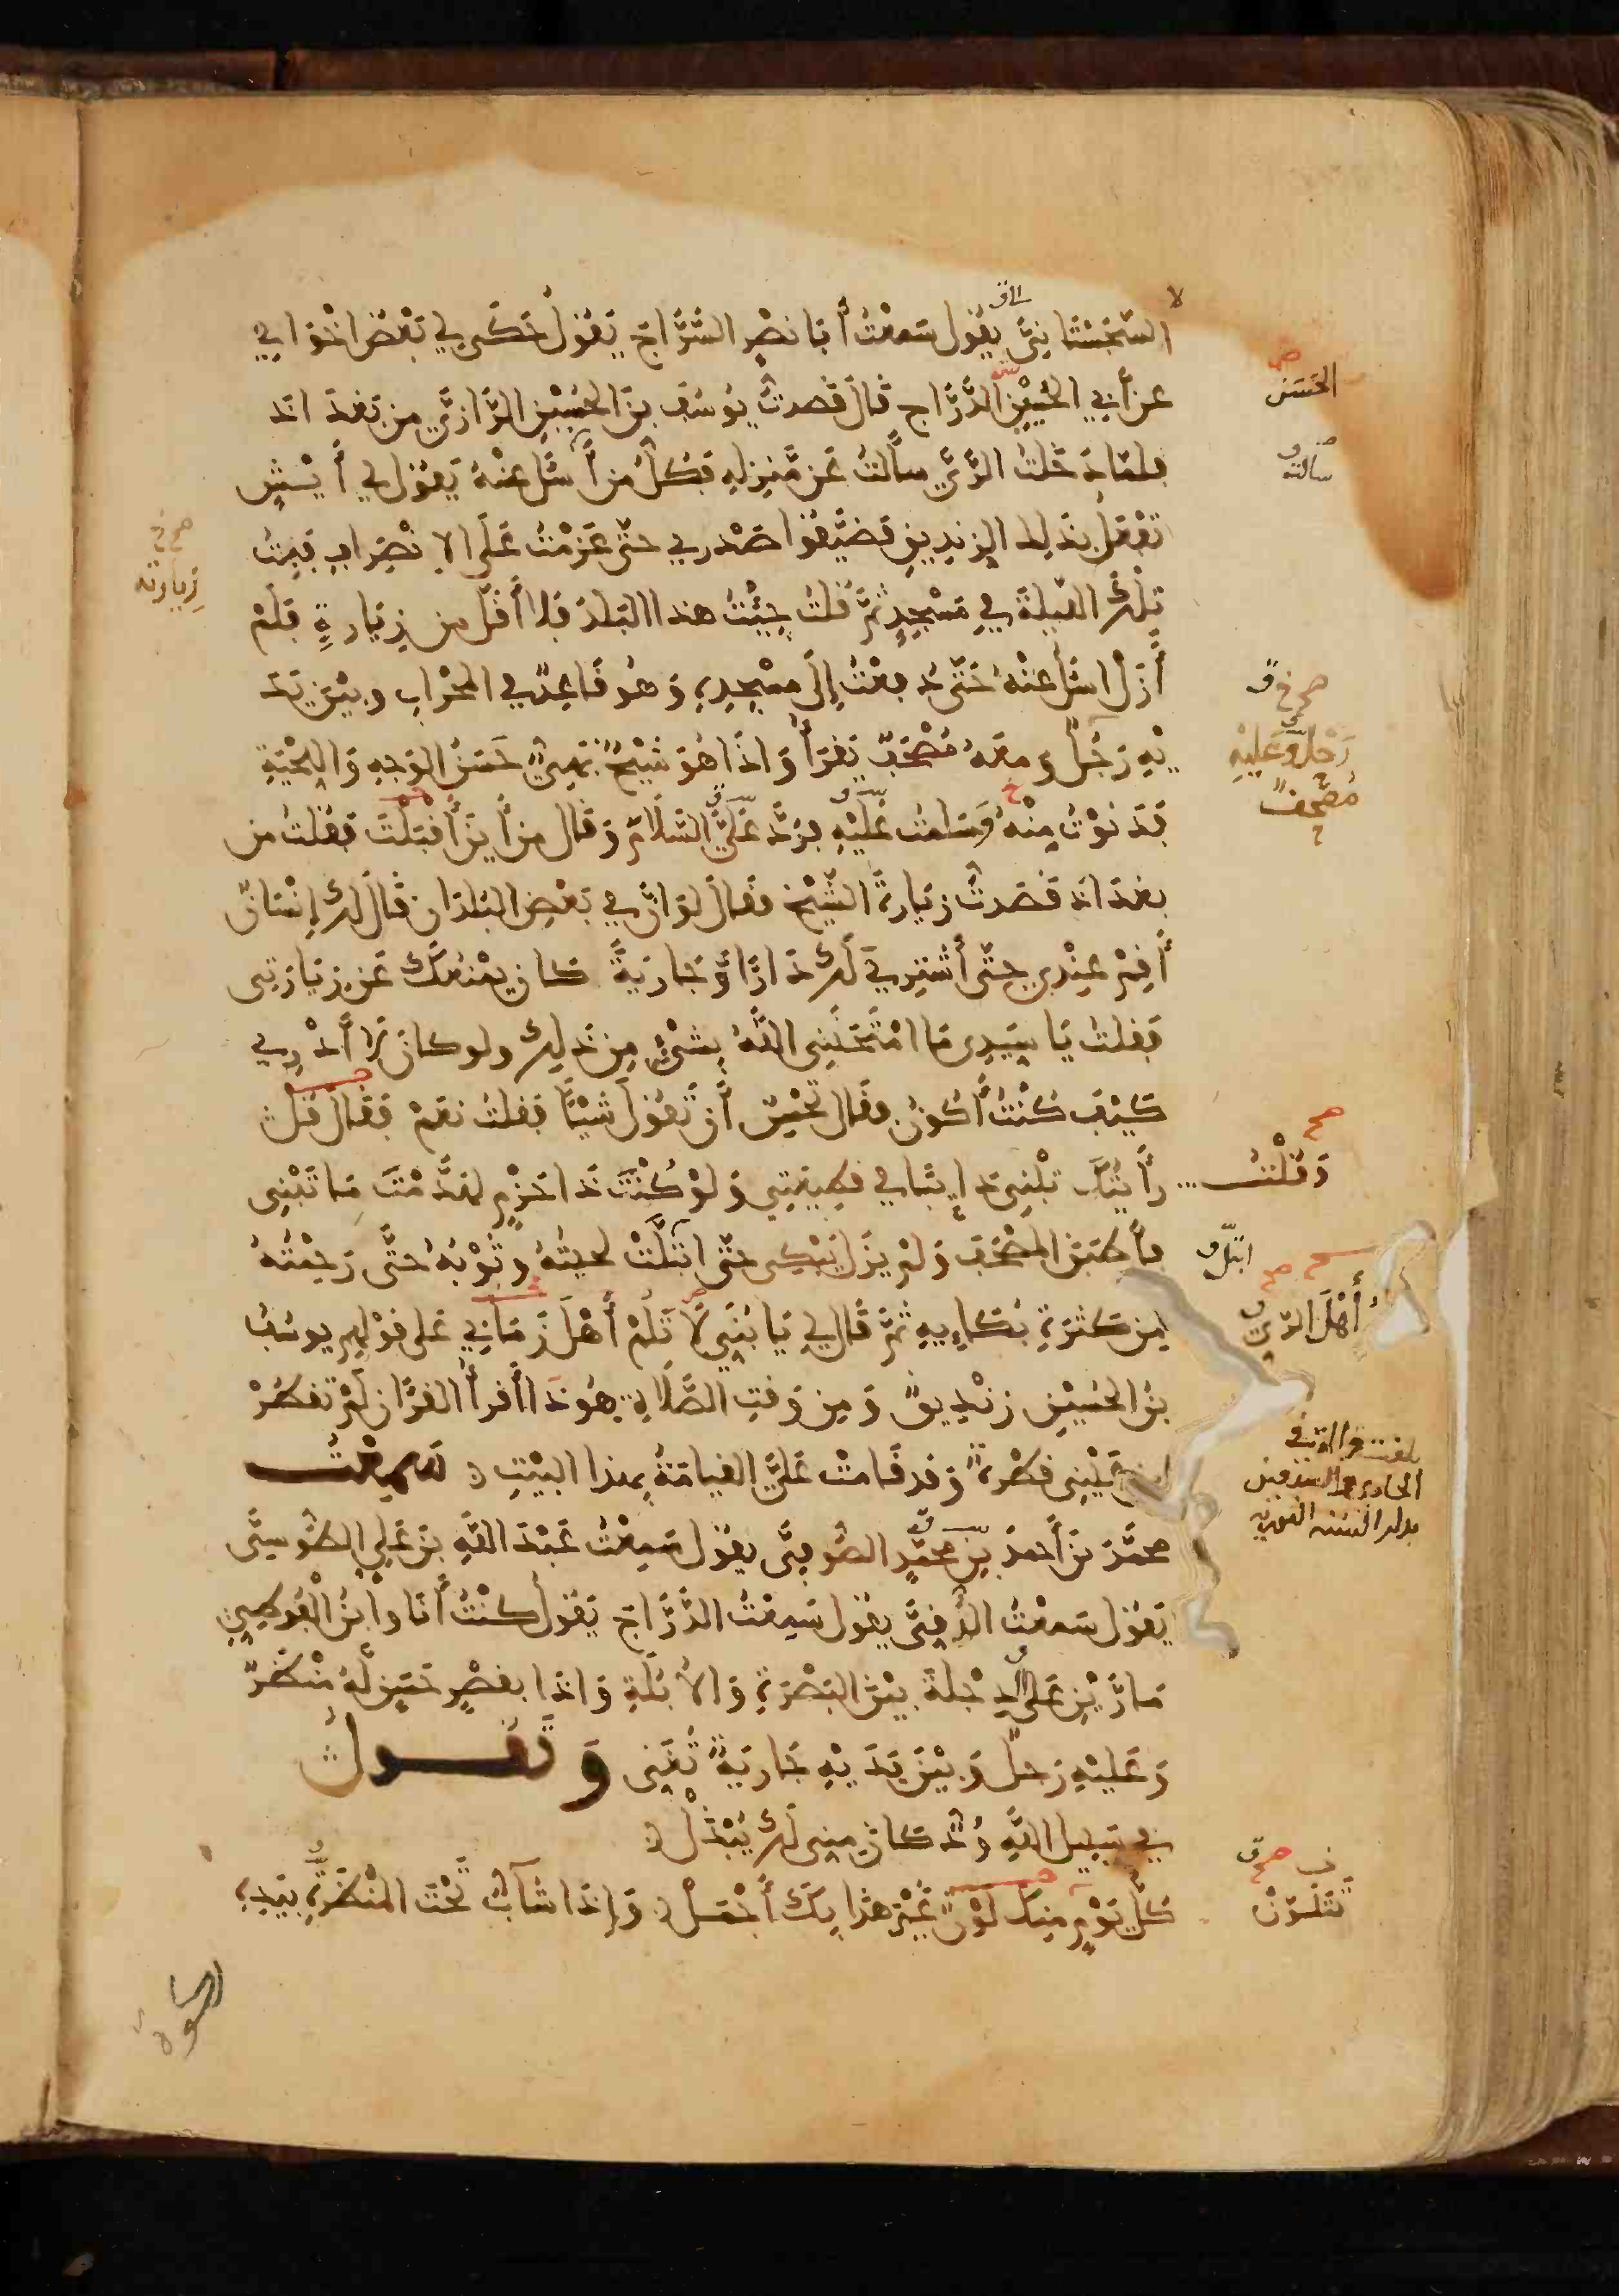 السَّجِسْتَانِيَّ يَقُولُ سَمِعْتُ أَبَا نَصْرٍ السَّرَّاجَ يَقُولُ حَكَى لِي بَعْضُ اخْوَانِي
عن أَبِي الحُسَيْنِ الدَّرَّاجِ قَالَ قَصدتُ يُوسُفَ بنَ الحُسَيْنِ الرَّازِيَّ مِن بَغدَاد
فلمّا دَخَلتُ الرَّيَّ سأَلتُ عَن مَّنزِلِهِ فَكُلُّ مَن أَسْأَل عنْهُ يَقُول لي أَيْشٍ
تَفْعَل بذَلِك الزِنديقِ فَضيَّقُوا صَدْرِي حتّى عَزَمْتُ عَلَى الانْصِرَافِ فَبِتُّ
تِلْكَ اللّيلةَ في مَسْجِدٍ ثمَّ قُلتُ جِئْتُ هذا البَلَدَ فَلا أَقَلَّ مِن زِيَارةٍ فَلَمْ
أَزَلْ اسْأَل عَنْهُ حَتَّى دفعْتُ إِلَى مسْجِدِهِ وَهُو قَاعِدٌ في المحْرَابِ وبيْنَ يَدَ
يْهِ رَجُلٌ ومعَهُ مُصْحَفٌ يَقرَأُ وَاذَا هُوَ شَيْخٌ بَهِيٌّ حَسَنُ الوَجهِ وَاللِّحْيَةِ
فَدَنَوْتُ مِنْهُ وَسَلمتُ عَلَيْهِ فرَدَّ عَلَيَّ السَّلَامَ وَقَال مِن أَيْنَ أَقْبَلْتَ فَقُلتُ مِن
بغدَاد قَصَدتُ زِيَارةَ الشّيْخِ فَقَالَ لَوَ انَّ في بَعْضِ البُلدَانِ قَالَ لك إِنْسَانٌ
أَقِمْ عِنْدِي حتّى أَشتَرِيَ لَكَ دَارًا وَّجَارِيَةً كَان يمْنَعُكَ عَن زِيَارَتِي
فَقُلتُ يَا سَيّدِي مَا امْتَحَنَنِي اللهُ بِشيْءٍ مِن ذَلِكَ ولو كانَ لا أَدْرِي
كَيْفَ كُنْتُ أَكُونُ فقَال تُحْسِنُ أَنْ تَقُولَ شَيْئًا فَقُلتُ نعَمْ فَقَالَ قُل
رأَيْتُكَ تَبْنِي دَايِبًا في قطِيعَتِي وَلَوْ كُنْتَ ذَا حَزْمٍ لهَدَّمْتَ مَا تَبْنِي
فأَطبَقَ المصْحَفَ وَلم يزَل يَبْكِي حتّى ابتَلَّتْ لِحيَتُهُ وَثَوْبُهُ حتَّى رَحِمْتُهُ
مِن كَثْرَةِ بُكَائِهِ ثمَّ قَال لِي يَا بُنَيَّ لَا تَلُمْ أَهْلَ زَمَانِي عَلى قوْلِهِم يوسُفُ
بنُ الحُسَيْنِ زِنْدِيقٌ وَمِن وَقتِ الصَّلَاةِ هُو ذَا أَقرأُ القرْآنَ لَمْ تقطُرْ
مِن عَيْنِي قطْرَةٌ وَقد قَامَتْ عَلَيَّ القيامَةُ بِهذا البَيْتِ سَمِعْتُ
محمّدَ بنَ أَحمدَ بنِ محمّدٍ الصُّوفِيَّ يقُول سَمِعْتُ عَبْدَ اللهِ بنَ عَلِي الطُّوسِيَّ
يَقُول سَمعْتُ الدُّقِّيَّ يقُول سَمِعْتُ الدَّرَّاجَ يَقُولُ كنْتُ أَنَا وابْنُ الفُوَطِيّ
مَارَّيْنِ عَلى الدِجْلَة بيْنَ البَصْرَةِ وَالأُبُلَّةِ وَاذَا بقَصْرٍ حَسَنٍ لَّهُ مَنْظَرٌ
وَعَليْهِ رَجلٌ وَبيْنَ يَدَيْهِ جَارِيَةٌ تُغَنِّي وَتَقُــولُ
في سَبيلِ اللهِ وُدٌّ كَانَ مِنِّي لَكَ يُبْذَلْ
كُلَّ يَوْمٍ مِنك لَوْنٌ غَيْرُ هٰذَا بِكَ أَجْمَلْ وَإِذَا شَابٌّ تَحْتَ المنْظَرَةِ بِيَدِهِ
الحَسَن
سالته
صح
زيارته
صح
رَجُلٌ وَعَلَيْهِ
مُصْحَفٌ
صح
وَقُلْتُ
ابتلّ
صح
أَهْلَ الرّيّ
صح
تَتَلَوَّنْ